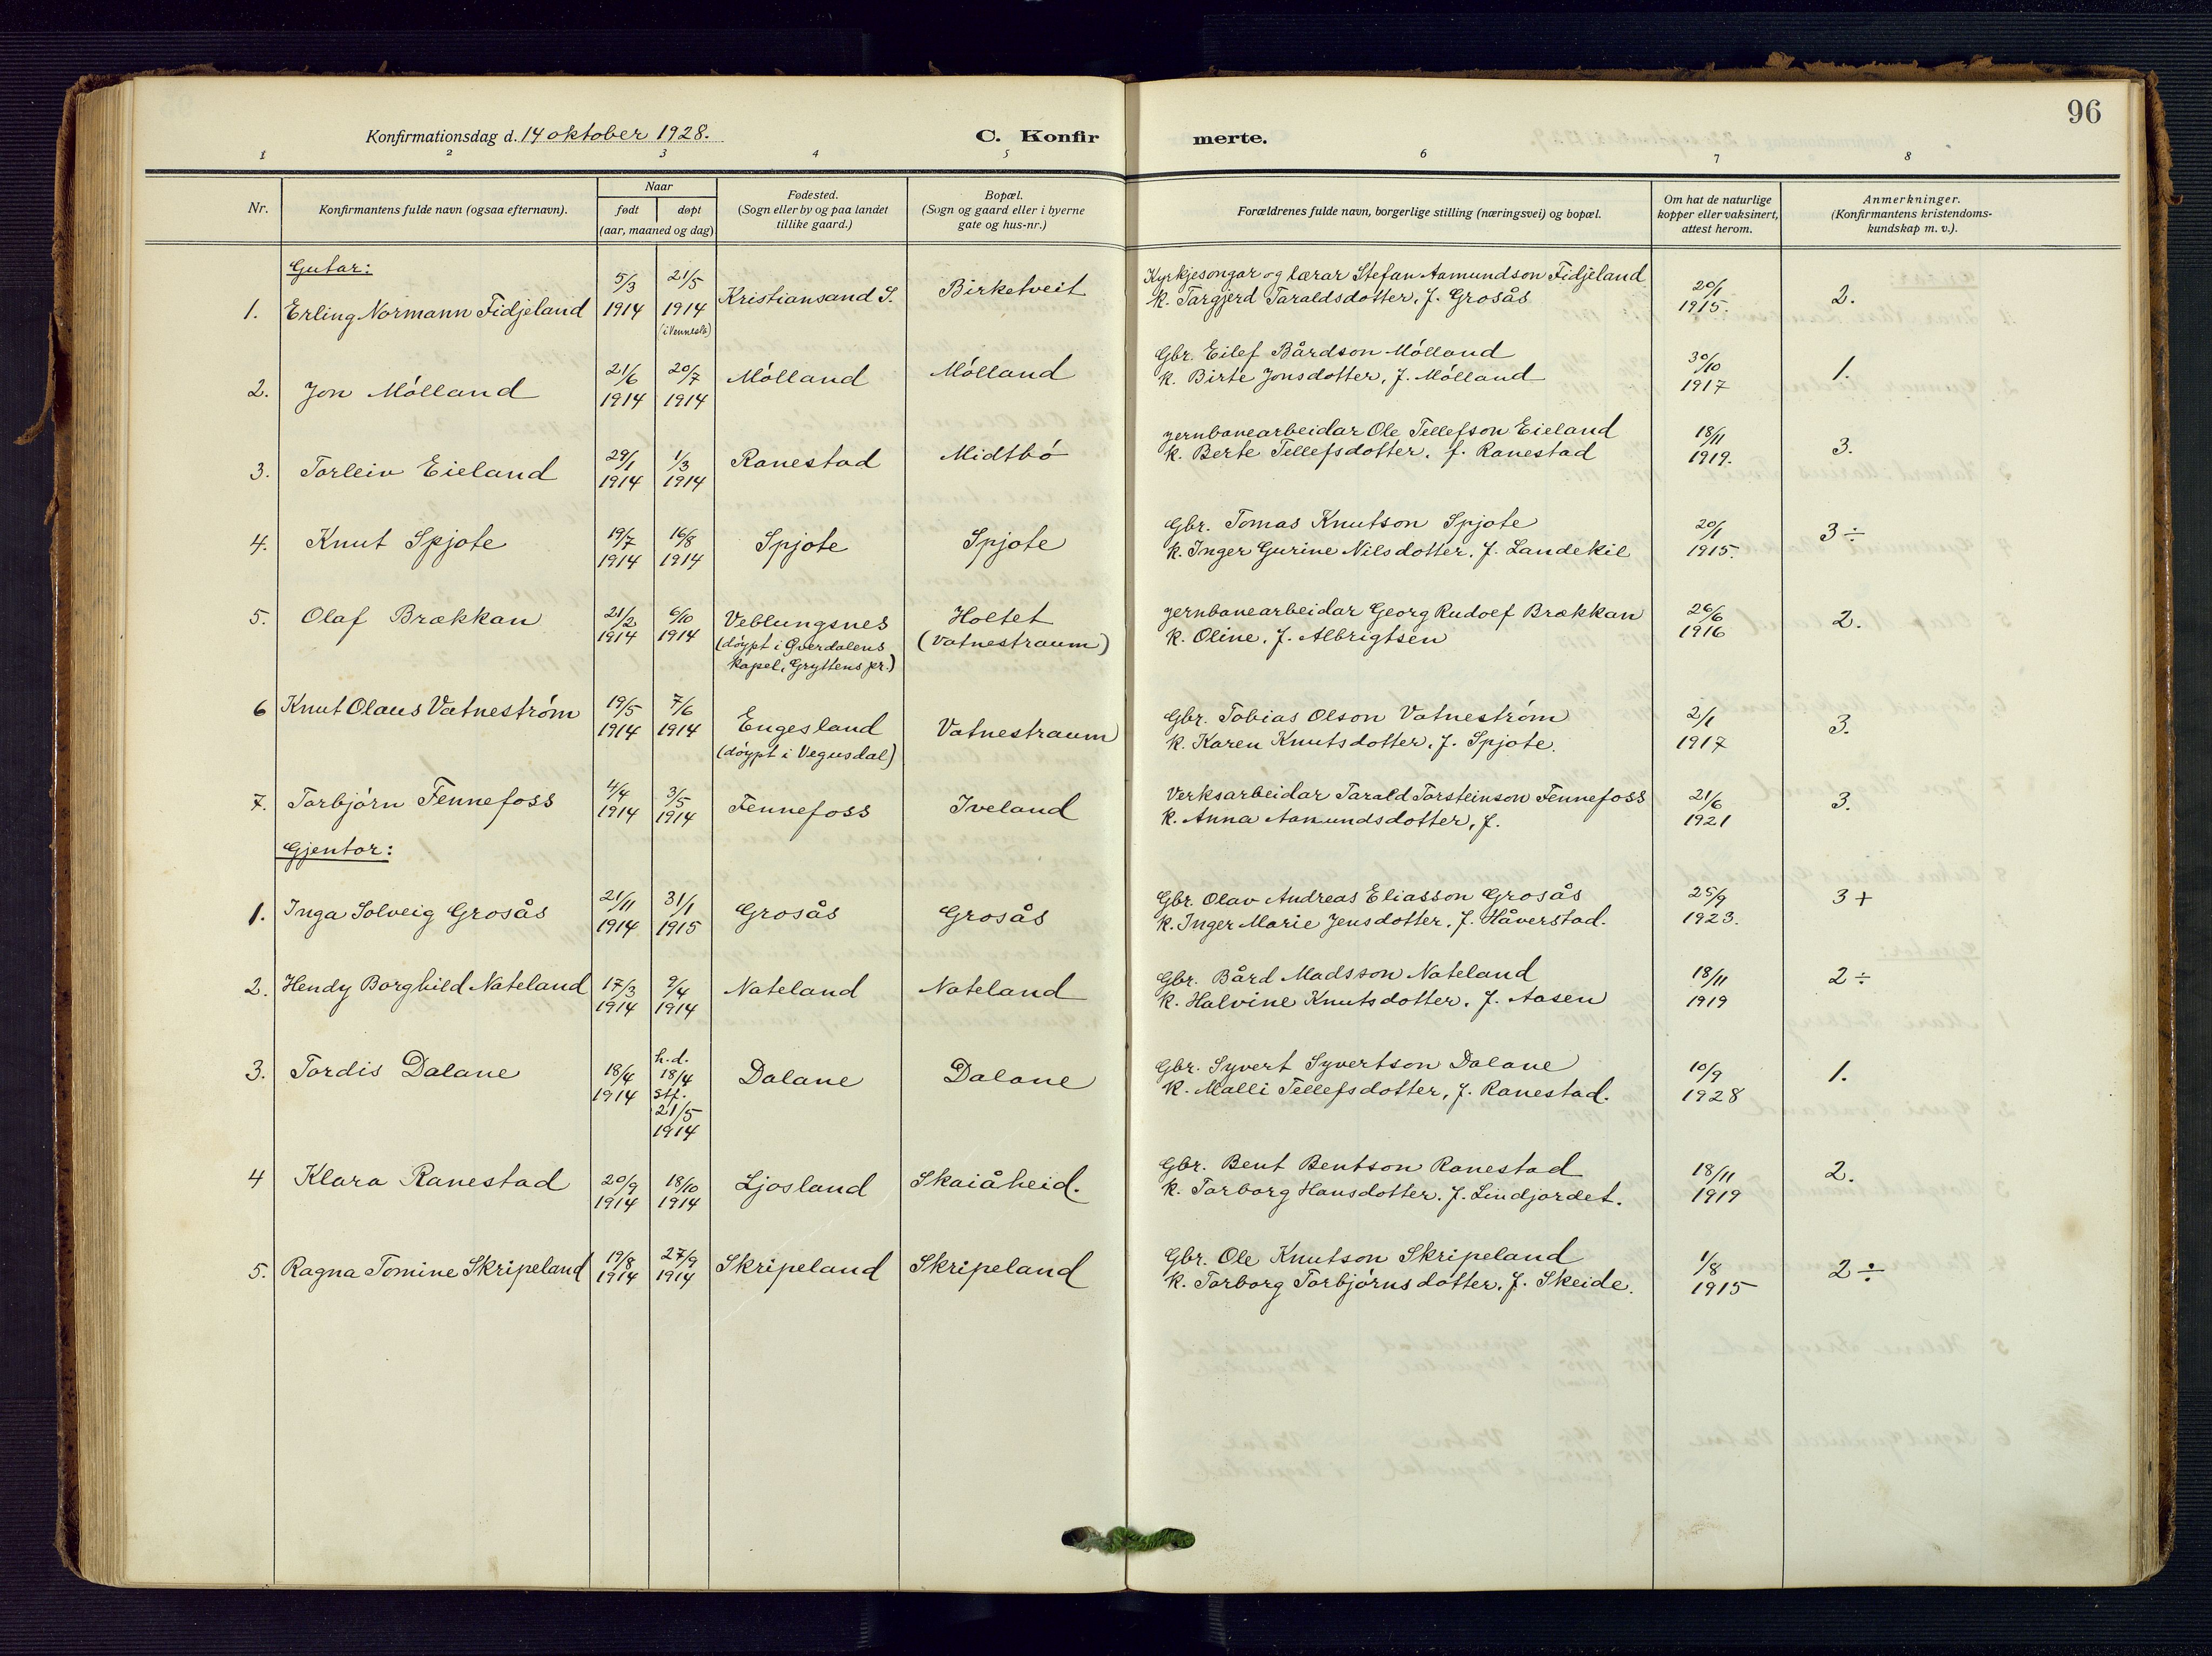 96
Konfirmationsdag d. 14 oktober 1928.
C. Konfirmerte.
1 2 3 4 5 6 7 8
Nr.
Konfirmantens fulde navn (ogsaa efternavn).
Naar
født døpt
(aar, maaned og dag)
Fødested.
(Sogn eller by og paa landet
tillike gaard.)
Bopæl.
(Sogn og gaard eller i byerne
gate og hus-nr.)
Forældrenes fulde navn, borgerlige stilling (næringsvei) og bopæl.
Om hat de naturlige
kopper eller vaksinert,
attest herom.
Anmerkninger.
(Konfirmantens kristendoms-
kundskap m. v.).
Gutar:
1. Erling Normann Fidjeland 5/3 1914 21/5 1914 (i Vennesla) Kristiansand S. Birketveit
Kyrkjesongar og lærar Stefan Aamundson Fidjeland
k. Targjerd Taraldsdotter, f. Grosås
20/1 1915. 2.
2. Jon Mólland 21/6 1914 20/7 1914 Mólland Mólland
Gbr. Eilef Bårdson Mólland
k. Birte Jonsdotter, f. Mólland
30/10 1917 1.
3. Torleiv Eieland 29/1 1914 1/3 1914 Ranestad Midtbó
jernbanearbeidar Ole Tellefson Eieland
k. Berte Tellefsdotter, f. Ranestad
18/11 1919. 3.
4. Knut Spjote 19/7 1914 16/8 1914 Spjote Spjote
Gbr. Tomas Knutson Spjote
k. Inger Gurine Nilsdotter, f. Landekil
20/1 1915. 3 ÷
5. Olaf Brækkan 21/2 1914 6/10 1914 Veblungsnes Holtet
(dóypt i Øverdalens (Vatnestraum)
kapel, Gryttens pr.)
jernbanearbeidar Georg Rudolf Brækkan
k. Oline, f. Albrigtsen
26/6 1916 2.
6 Knut Olaus Vatnestróm 19/5 1914 7/6 1914 Engesland Vatnestraum
(dóypt i Vegusdal)
Gbr. Tobias Olson Vatnestróm
k. Karen Knutsdotter, f. Spjote.
2/1 1917 3.
7. Torbjórn Fennefoss 4/4 1914 3/5 1914 Fennefoss Iveland
Verksarbeidar Tarald Torsteinson Fennefoss
k. Anna Aamundsdotter, f.
21/6 1921 3.
Gjentor:
1. Inga Solveig Grosås 21/11 1914 31/1 1915 Grosås Grosås
Gbr. Olav Andreas Eliasson Grosås
k. Inger Marie Jensdotter, f. Håverstad.
25/9 1923. 3 +
2. Hendy Borghild Nateland 17/3 1914 9/4 1914 Nateland Nateland
Gbr. Bård Madsson Nateland
k. Halvine Knutsdotter, f. Aasen
18/11 1919 2 ÷
3. Tordis Dalane 18/4 1914 h.d. 18/4 stf. 21/5 1914 Dalane Dalane
Gbr. Syvert Syvertson Dalane
k. Malli Tellefsdotter, f. Ranestad.
10/9 1928 1.
4 Klara Ranestad 20/9 1914 18/10 1914 Ljosland Skaiåheid.
Gbr. Bent Bentson Ranestad
k. Torborg Hansdotter, f. Lindjordet.
18/11 1919 2.
5. Ragna Tomine Skripeland 19/8 1914 27/9 1914 Skripeland Skripeland
Gbr. Ole Knutson Skripeland
k. Torborg Torbjórnsdotter, f. Skeide.
1/8 1915 2 ÷